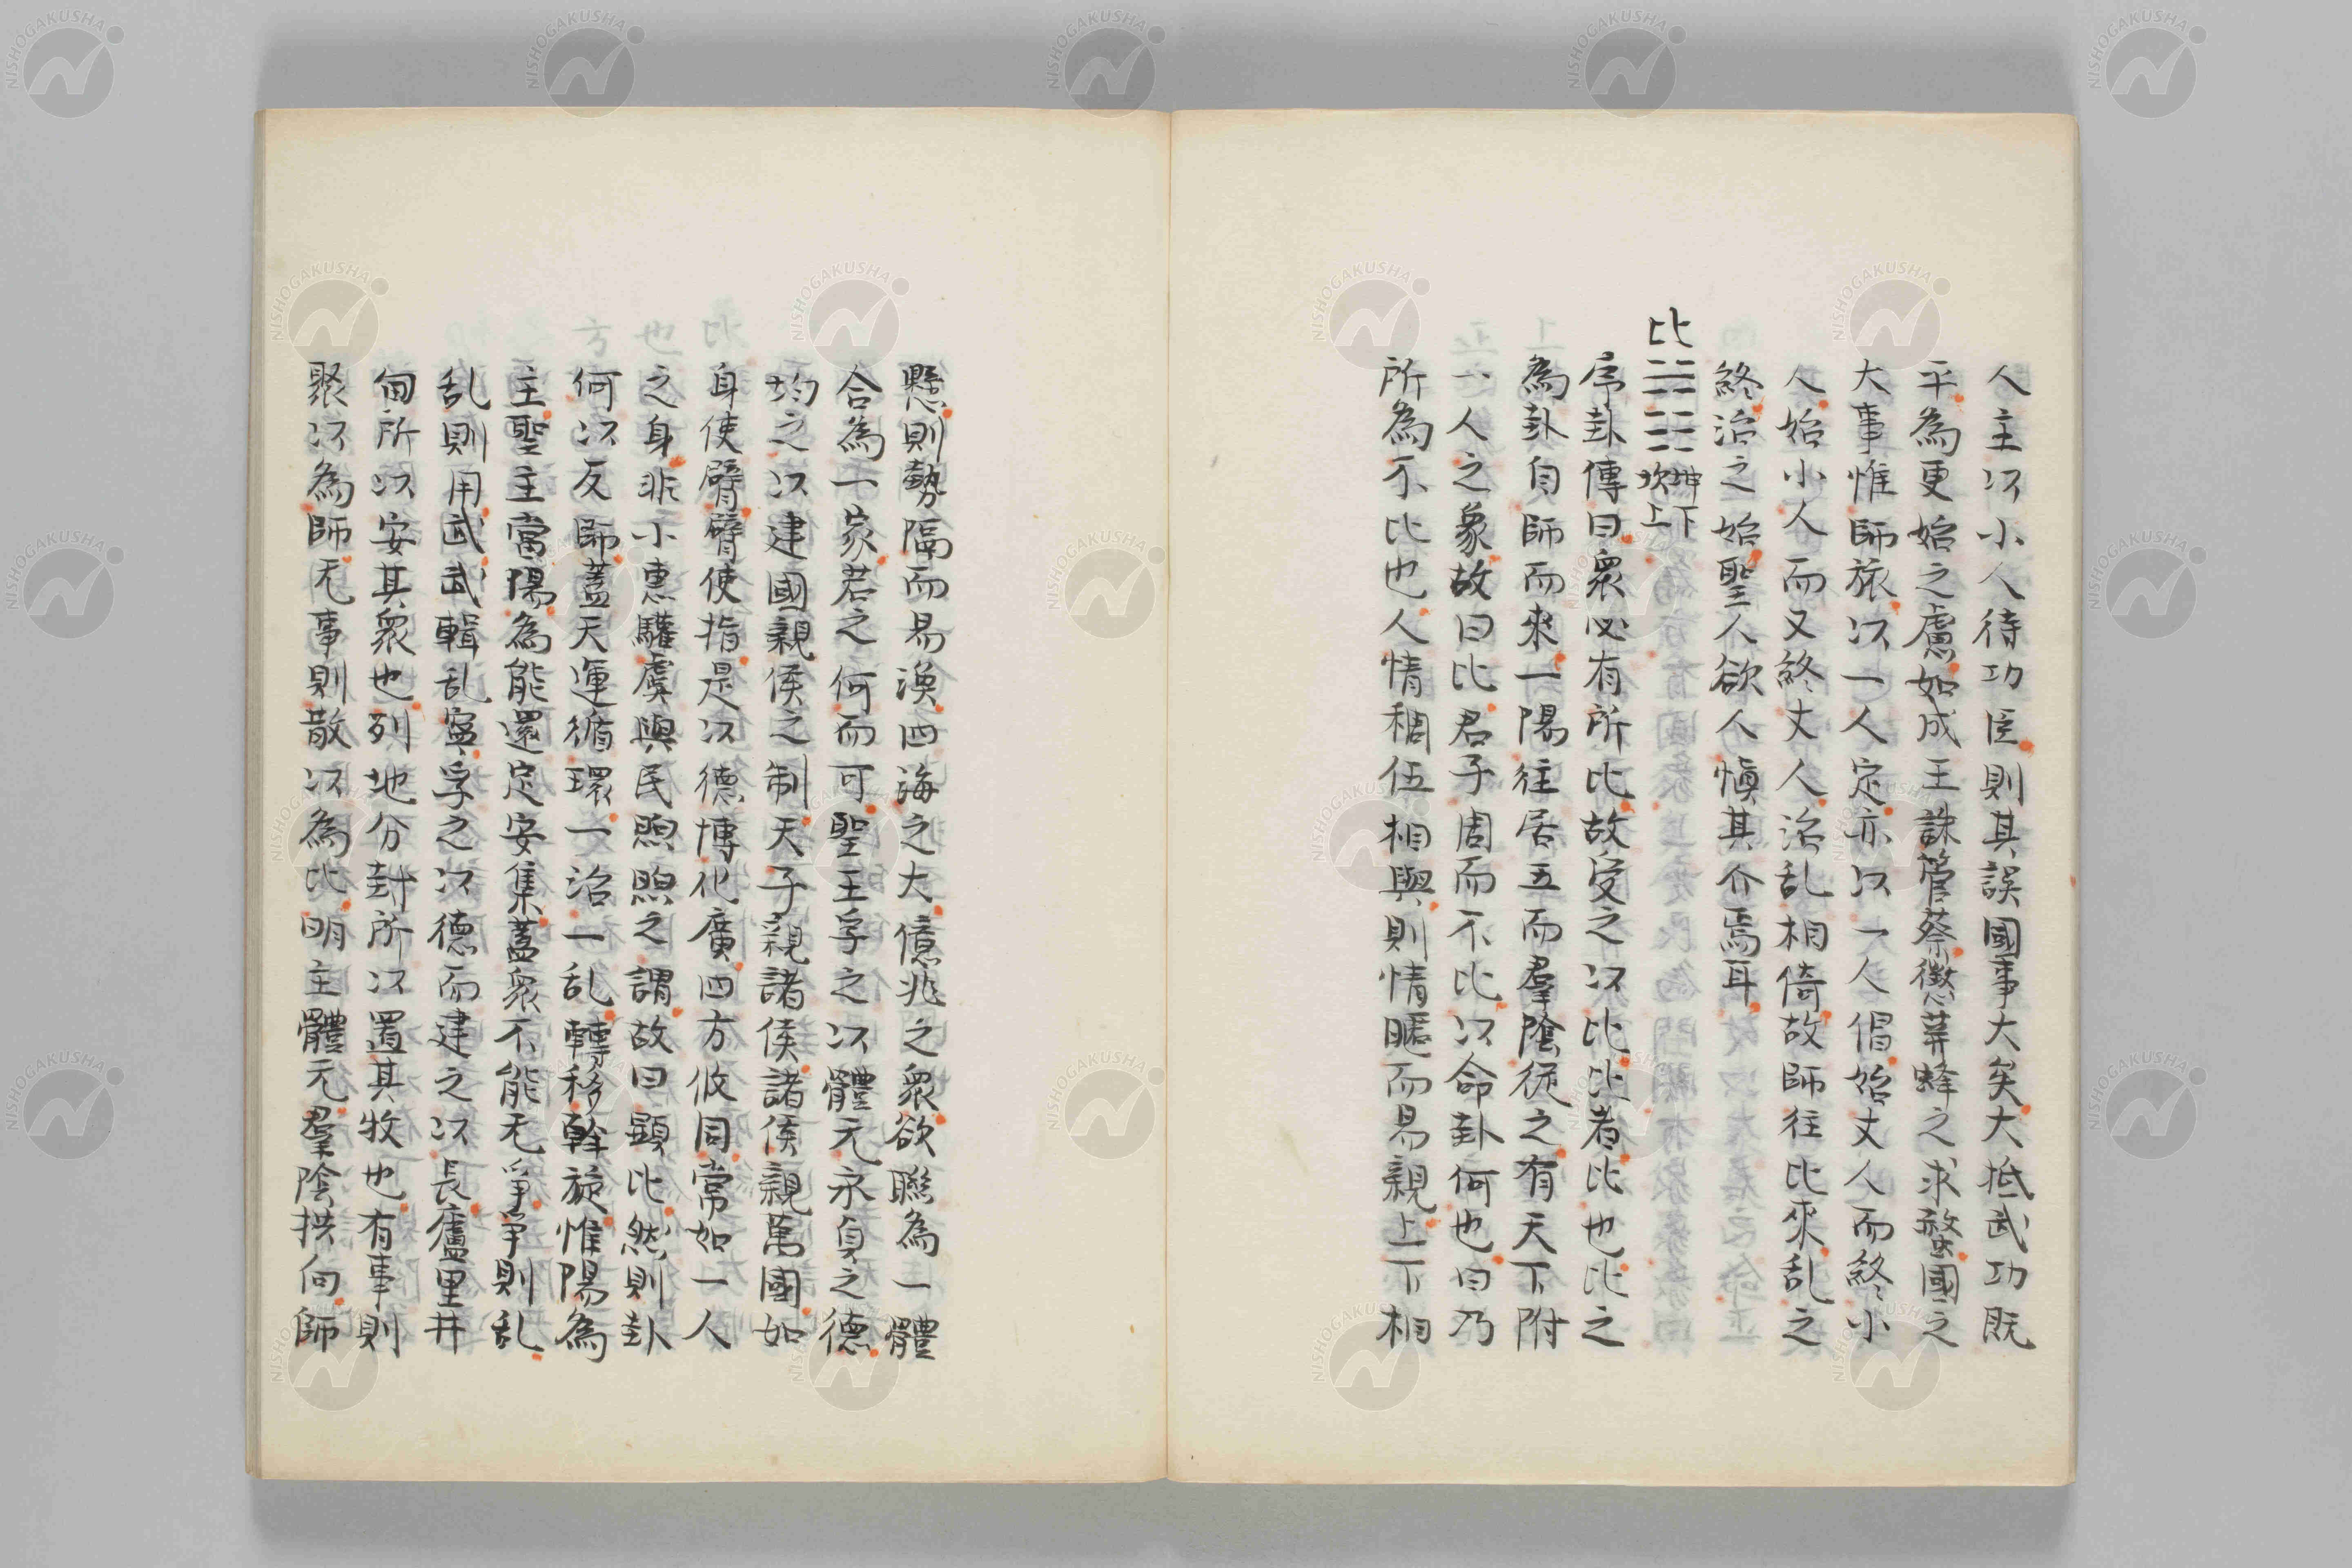 人主以小人待功臣則其誤國事大矣大抵武功既
平為更始之慮如成王誅管蔡懲荓蜂之求蝥國之
大事惟師旅以一人定亦以一人倡始丈人而終小
人始小人而又終丈人治乱相倚故師往比來乱之
終治之始聖人欲人愼其介焉耳
比 坤下坎上
序卦傳曰衆必有所比故受之以比比者比也比之
為卦自師而來一陽往居五而羣陰從之有天下附
一人之象故曰比君子周而不比以命卦何也曰乃
所為不比也人情稠伍相與則情暱而易親上下相
懸則勢隔而易渙四海之大億兆之衆欲聯為一體
合為一家若之何而可聖王孚之以體元永貞之德
均之以建國親侯之制天子親諸侯諸侯親萬國如
身使臂臂使指是以德博化廣四方攸同常如一人
之身非小惠驩虞與民煦煦之謂故曰顕比然則卦
何以反師蓋天運循環一治一乱轉移斡旋惟陽為
主聖主當陽為能還定安集蓋衆不能无爭爭則乱
乱則用武武輯乱寍孚之以德而建之以長廬里井
甸所以安其衆也列地分封所以置其牧也有事則
聚以為師无事則散以為比明主體元羣陰拱向師
NISHOGAKUSHA